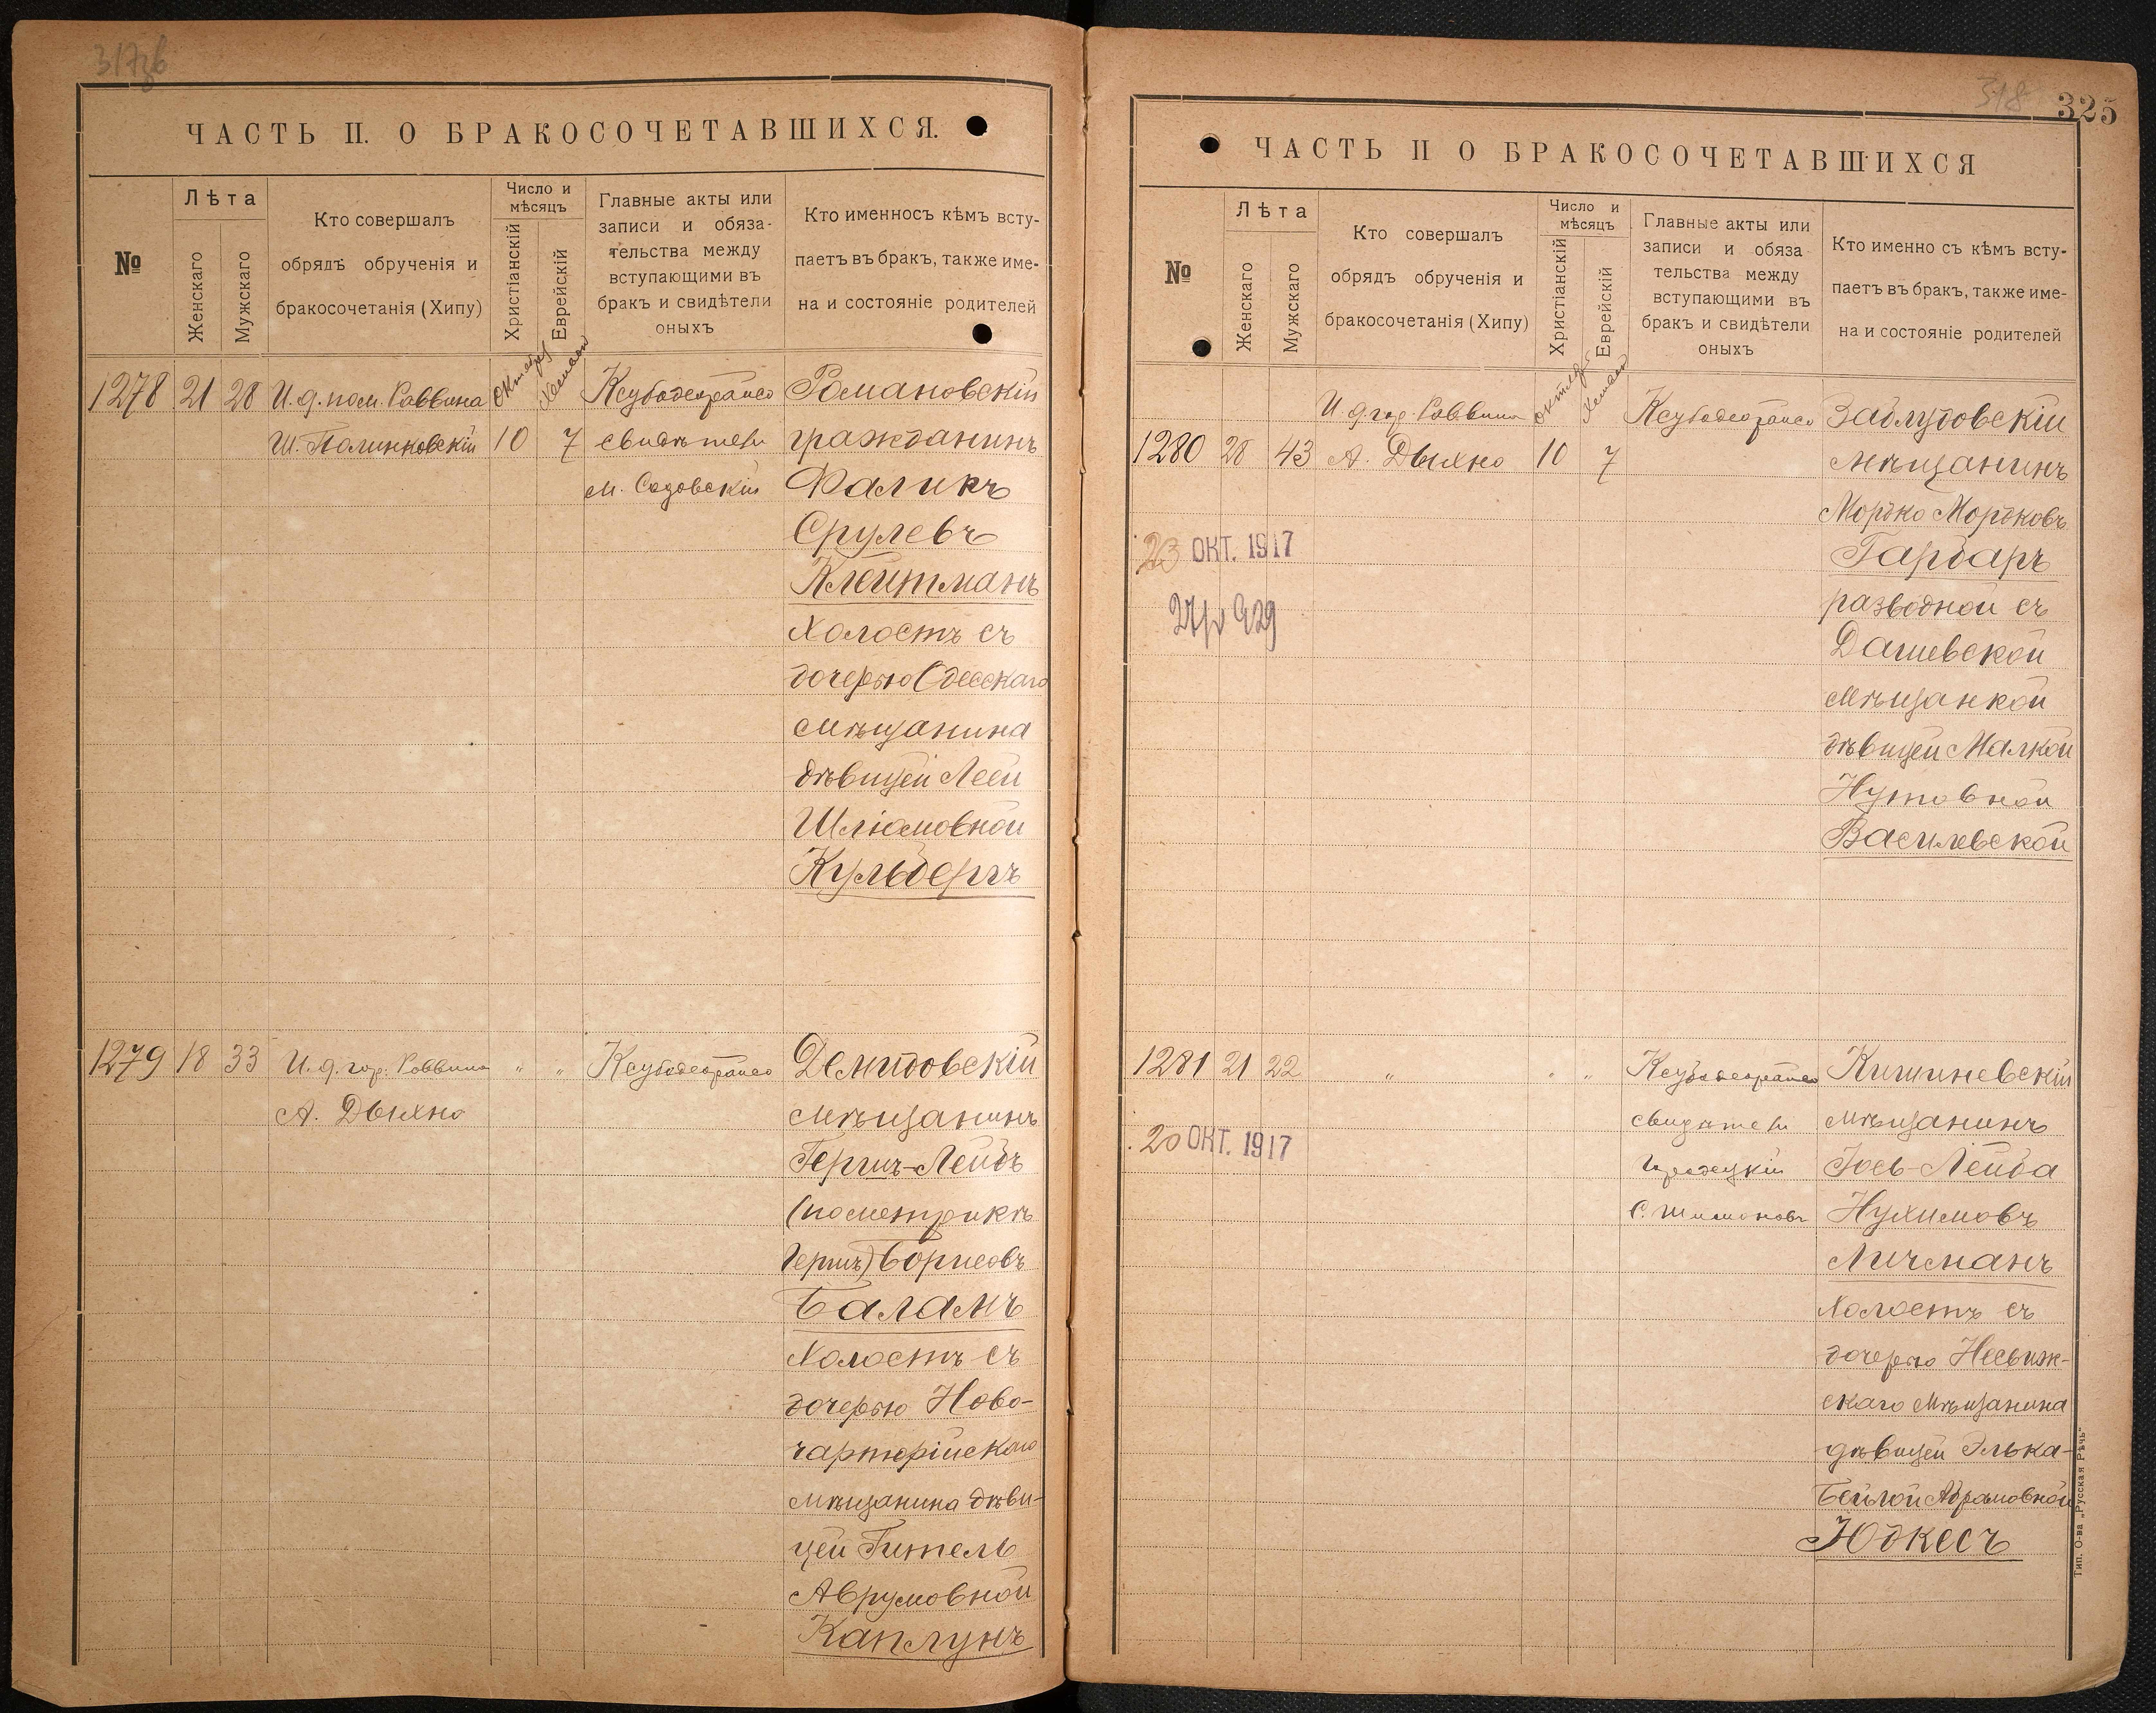 317об
ЧАСТЬ II. О БРАКОСОЧЕТАВШИХСЯ.
№
Лѣта
Женскаго
Мужскаго
Кто совершалъ
обрядъ обрученія и
бракосочетанія (Хипу)
Число и
мѣсяцъ
Христіанскій
Еврейскій
Главные акты или
записи и обяза-
тельства между
вступающими въ
бракъ и свидѣтели
оныхъ
Кто именносъ кѣмъ всту-
паетъ въ бракъ, также име-
на и состояніе родителей
1278 21 28 И. д. пом. Раввина
Ш. Полинковскій
Октября
10
Хешвон
7
свидѣтели
М. Садовскій
Романовскій
гражданинъ
Фаликъ
Срулевъ
Клейтманъ
холостъ съ
дочерью Одесскаго
мѣщанина
дѣвицей Леей
Шлiомовной
Кульбергъ
1279 18 33 И. д. гор. Раввина " "
А. Дыхно
Демидовскій
мѣщанинъ
Гершъ-Лейбъ
(по метрикѣ
Гершъ) Борисовъ
Баламъ
холостъ съ
дочерью Ново-
чарторійскаго
мѣщанина дѣви-
цей Гитель
Аврумовной
Каплунъ
318
325
ЧАСТЬ II О БРАКОСОЧЕТАВШИХСЯ
№
Лѣта
Женскаго
Мужскаго
Кто совершалъ
обрядъ обрученія и
бракосочетанія (Хипу)
Число и
мѣсяцъ
Христіанскій
Еврейскій
Главные акты или
записи и обяза
тельства между
вступающими въ
бракъ и свидѣтели
оныхъ
Кто именно съ кѣмъ всту-
паетъ въ бракъ, также име-
на и состояніе родителей
И. д. гор. Раввина
1280 28 43 А. Дыхно
Октября
10
Хешвон
7
23 ОКТ. 1917
Заблудовскій
мѣщанинъ
Мордко Мордковъ
Гарбаръ
разводной съ
Дашевской
мѣщанкой
дѣвицей Малкой
Нутовной
Василевской
1281 21 22 " " "
20 ОКТ. 1917
свидѣтели
Городецкій
С. Шимоновъ
Кишиневскій
мѣщанинъ
Іось-Лейба
Нухимовъ
Личманъ
холостъ съ
дочерью Несвиж-
скаго мѣщанина
дѣвицей Элька-
Бейлой Абрамовной
Юдкесъ
Тип. О-ва „Русская Рѣчь"